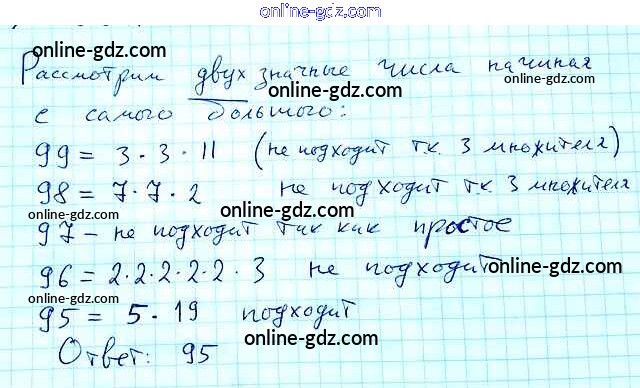 online-gdz.com
online-gdz.com
Рассмотрим двухзначные числа начиная
online-gdz.com online-gdz.com
с самого большого:
99 = 3 · 3 · 11 (не подходит т.к. 3 множителя)
online-gdz.com
98 = 7 · 7 · 2 не подходит т.к. 3 множителя
online-gdz.com online-gdz.com
97 – не подходит так как простое
96 = 2·2·2·2·2·3 не подходит online-gdz.com
online-gdz.com
95 = 5 · 19 подходит
online-gdz.com
Ответ: 95
online-gdz.com